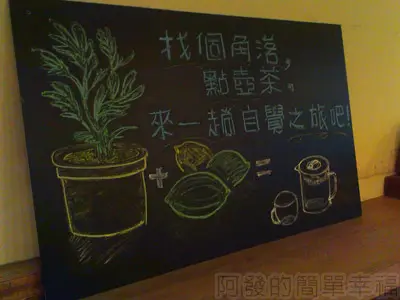 找個角落,
點壺茶。
來一趟自覺之旅吧!
+ =
阿發的簡單幸福